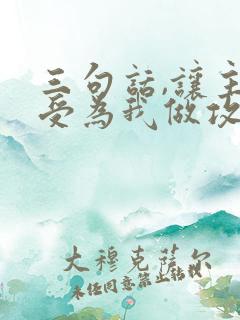 三句話,讓主
受為我做攻
大穆克薩爾
未任同意禁止轉載